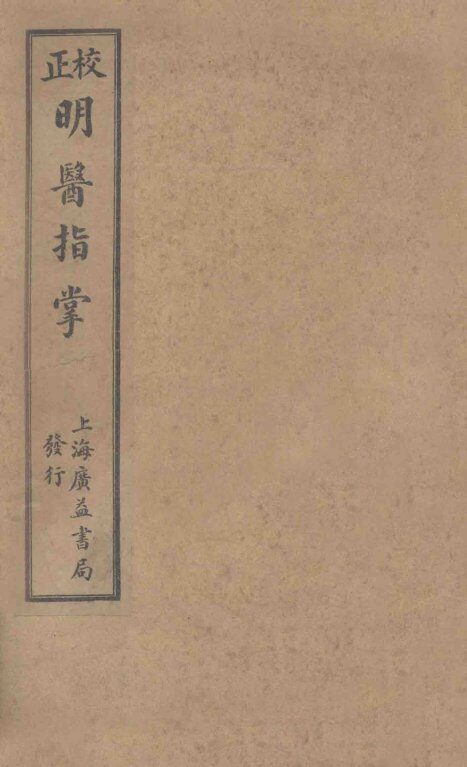 校正
明醫指掌
上海廣益書局
發行